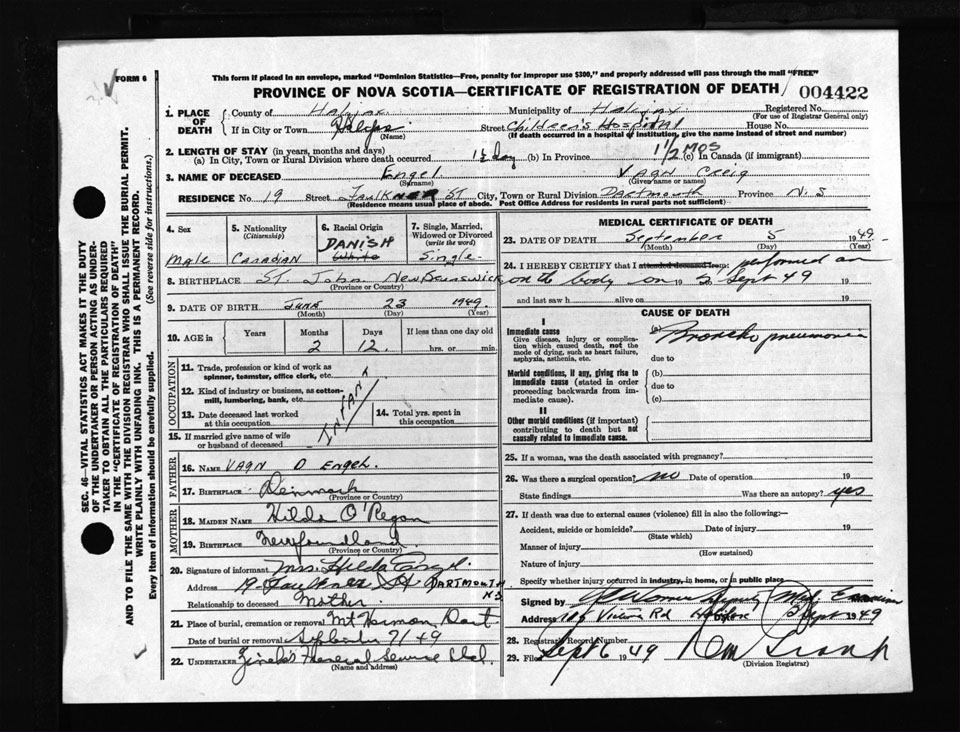 FORM 6
This form if placed in an envelope, marked "Dominion Statistics—Free, penalty for improper use $300," and properly addressed will pass through the mail "FREE"
PROVINCE OF NOVA SCOTIA—CERTIFICATE OF REGISTRATION OF DEATH 004422
SEC. 46—VITAL STATISTICS ACT MAKES IT THE DUTY
OF THE UNDERTAKER OR PERSON ACTING AS UNDER-
TAKER TO OBTAIN ALL THE PARTICULARS REQUIRED
IN THE "CERTIFICATE OF REGISTRATION OF DEATH"
AND TO FILE THE SAME WITH THE DIVISION REGISTRAR WHO SHALL ISSUE THE BURIAL PERMIT.
WRITE PLAINLY WITH UNFADING INK. THIS IS A PERMANENT RECORD.
Every item of information should be carefully supplied. (See reverse side for instructions.)
1. PLACE OF DEATH
County of Halifax Municipality of Halifax Registered No.
(For use of Registrar General only)
If in City or Town Halifax Street Children's Hospital House No.
(Name) (If death occurred in a hospital or institution, give the name instead of street and number)
2. LENGTH OF STAY (in years, months and days)
(a) In City, Town or Rural Division where death occurred 1½ day (b) In Province 1 1/2 mos (c) In Canada (if immigrant)
3. NAME OF DECEASED Engel Vagn Creig
(Surname) (Given name or names)
RESIDENCE No. 19 Street Faulkner St City, Town or Rural Division Dartmouth Province N.S
(Residence means usual place of abode. Post Office Address for residents in rural parts not sufficient)
4. Sex 5. Nationality (Citizenship) 6. Racial Origin 7. Single, Married, Widowed or Divorced (write the word)
Male Canadian DANISH White Single
8. BIRTHPLACE St John New Brunswick
(Province or Country)
9. DATE OF BIRTH June 23 1949
(Month) (Day) (Year)
10. AGE in Years Months Days If less than one day old
2 12. hrs. or min.
OCCUPATION
11. Trade, profession or kind of work as spinner, teamster, office clerk, etc.
12. Kind of industry or business, as cotton-mill, lumbering, bank, etc.
INFANT
13. Date deceased last worked at this occupation
14. Total yrs. spent in this occupation
15. If married give name of wife or husband of deceased
FATHER
16. NAME VAGN O Engel.
17. BIRTHPLACE Denmark
(Province or Country)
MOTHER
18. MAIDEN NAME Hilda O'Regan
19. BIRTHPLACE Newfoundland.
(Province or Country)
20. Signature of informant Mrs. Hilda Engel.
Address 19 Faulkner St DARTMOUTH NS
Relationship to deceased Mother.
21. Place of burial, cremation or removal Mt Hermon, Dart
Date of burial or removal September 7/49
22. UNDERTAKER Zinck's Funeral Service Ltd.
(Name and address)
MEDICAL CERTIFICATE OF DEATH
23. DATE OF DEATH September 5 1949
(Month) (Day) (Year)
24. I HEREBY CERTIFY that I attended deceased from: performed an
on the body on 19 5 Sept 49 19
and last saw h alive on 19
CAUSE OF DEATH
I
Immediate cause
Give disease, injury or complication which caused death, not the mode of dying, such as heart failure, asphyxia, asthenia, etc.
(a) Broncho pneumonia
due to
Morbid conditions, if any, giving rise to immediate cause (stated in order proceeding backwards from immediate cause).
(b)
due to
(c)
II
Other morbid conditions (if important) contributing to death but not causally related to immediate cause.
25. If a woman, was the death associated with pregnancy?
26. Was there a surgical operation? no Date of operation 19
State findings Was there an autopsy? yes
27. If death was due to external causes (violence) fill in also the following:—
Accident, suicide or homicide? Date of injury 19
(State which)
Manner of injury
(How sustained)
Nature of injury
Specify whether injury occurred in industry, in home, or in public place
Signed by Deputy Med. Examiner
Address Rd Halifax Sept 1949
28. Registrar's Record Number
29. Filed Sept 6 1949
(Division Registrar)